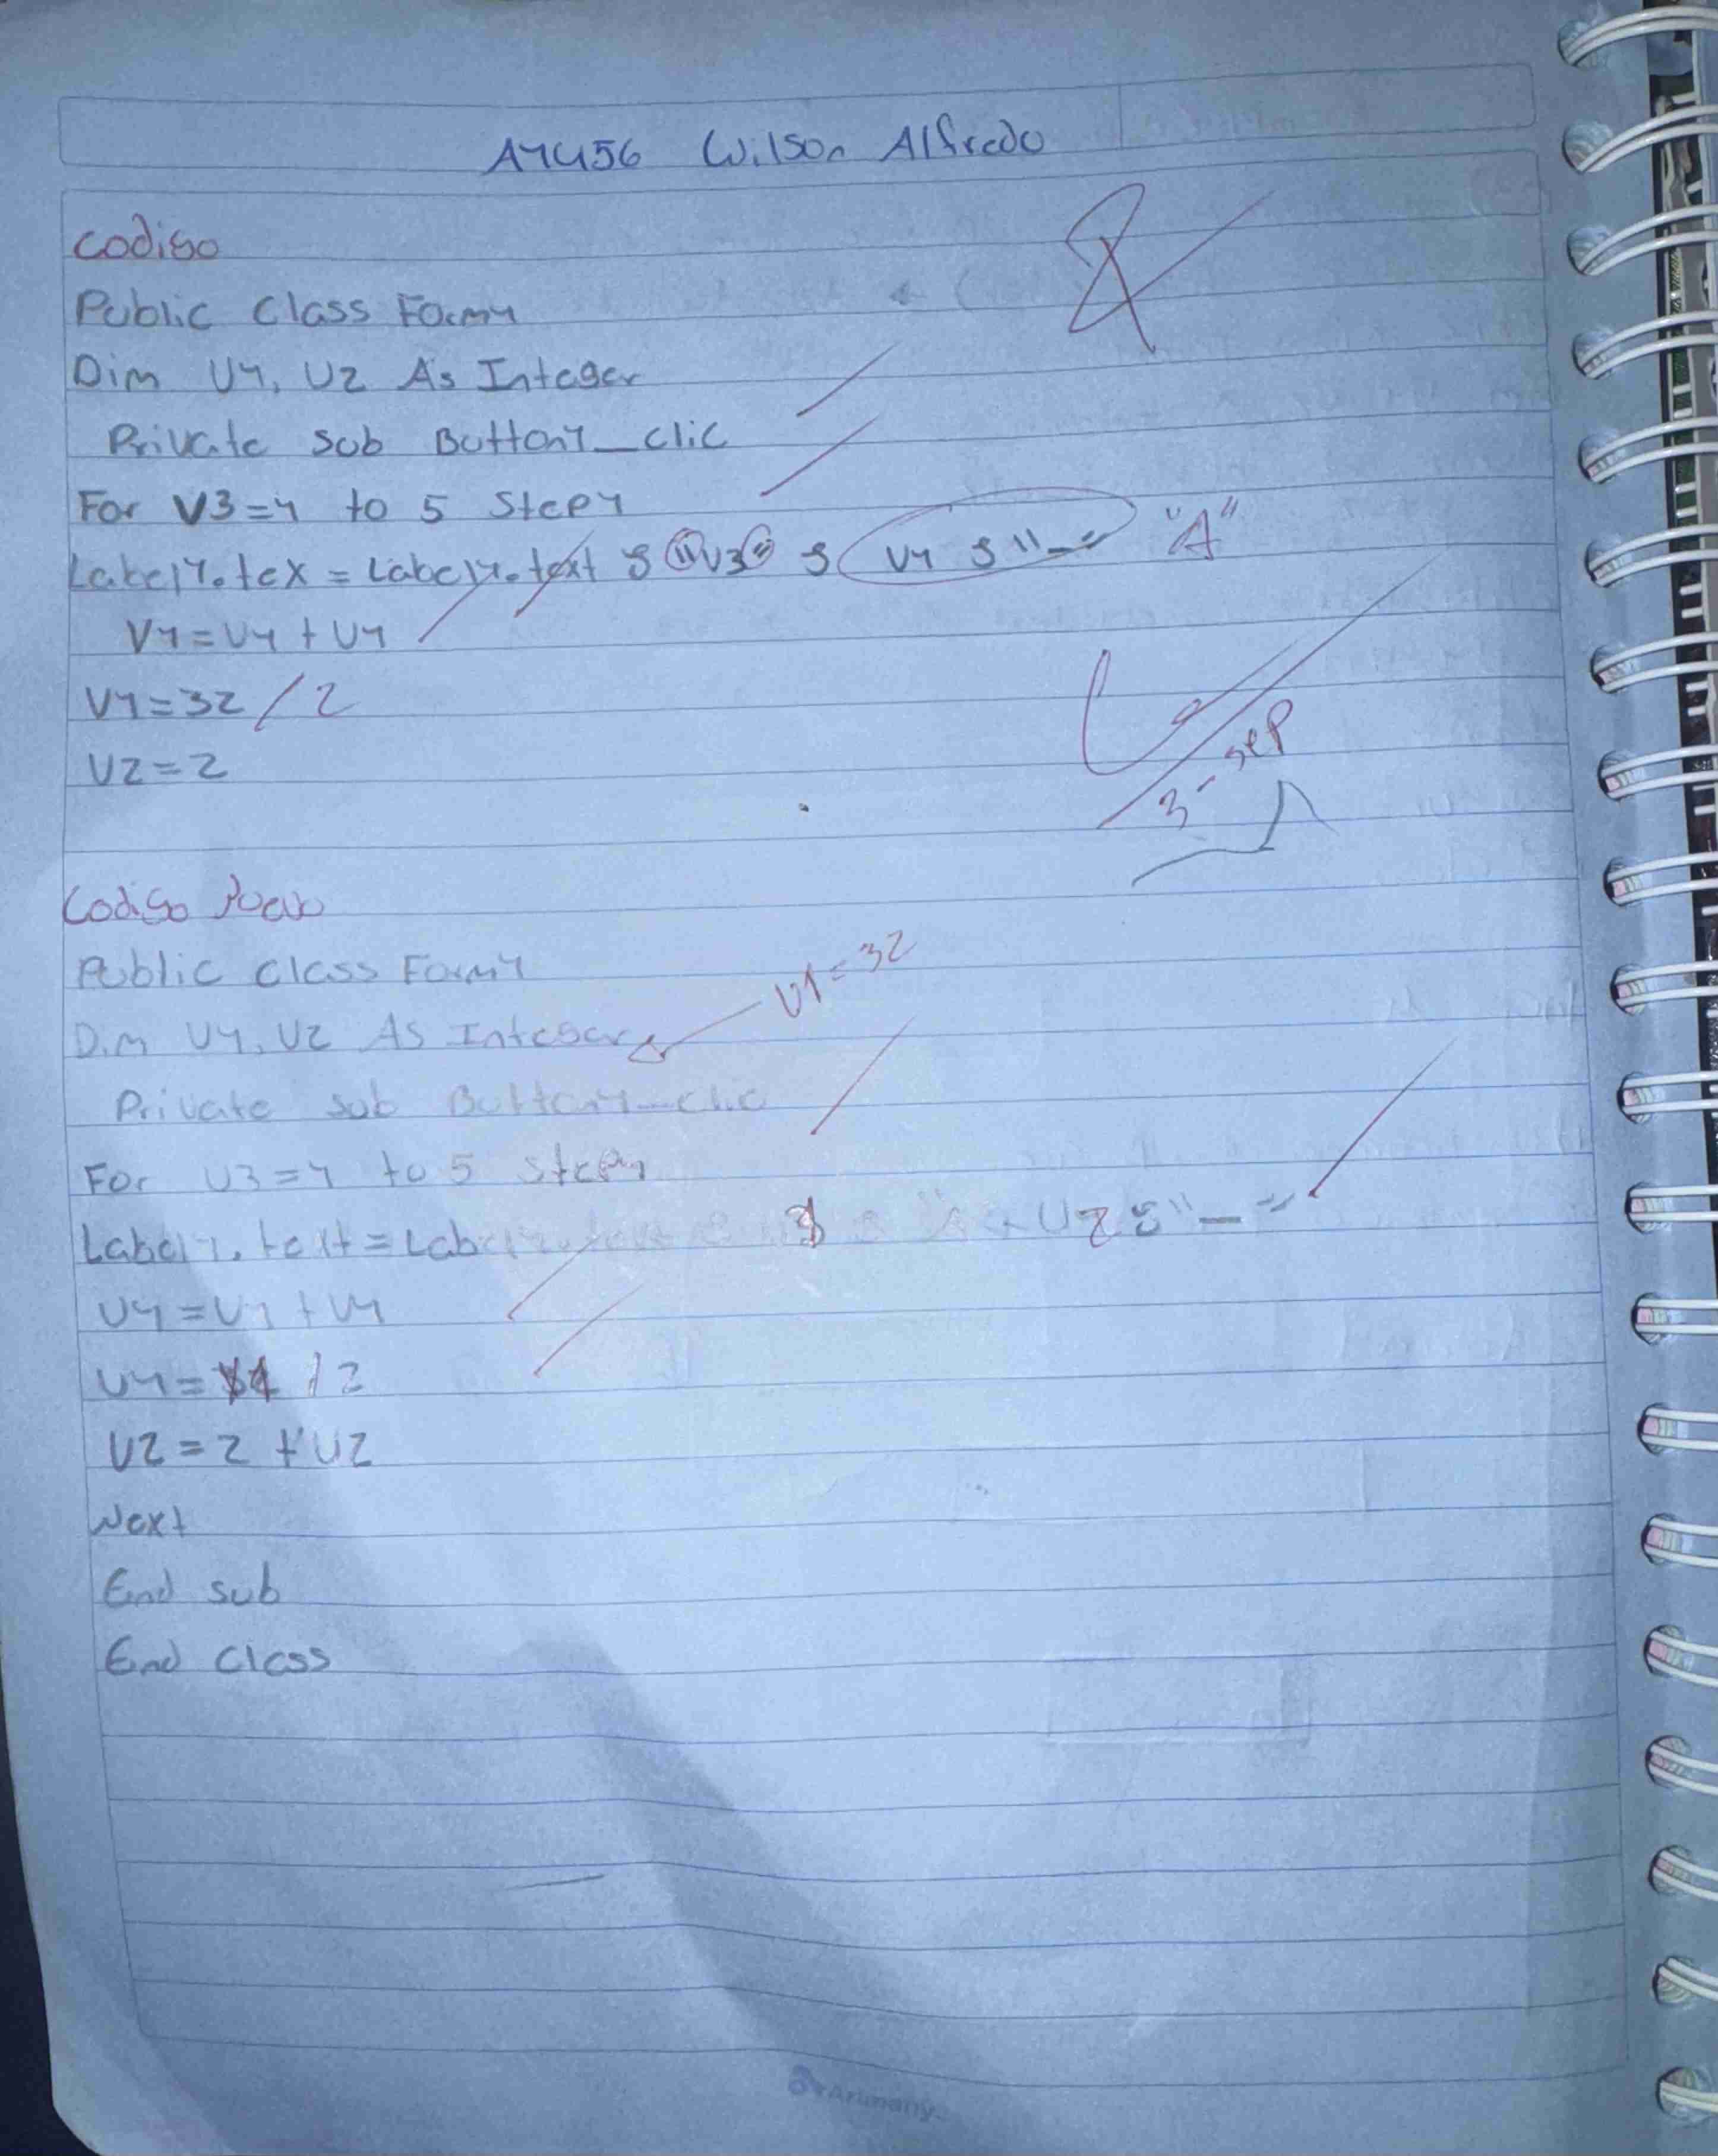 A1456 Wilson Alfredo
Codigo
Public Class Form1
Dim V1, V2 As Integer
Private Sub Button1_clic
For V3=1 to 5 Step1
Label1.tex = Label1.text & "V3" & V1 & "-" "A"
V1=V1 + V1
V1=32 / 2
V2=2
3-sep
Codigo Nuevo
Public Class Form1
V1=32
Dim V1, V2 As Integer
Private Sub Button1_clic
For V3=1 to 5 Step1
Label1.text = Lab V2 & "-"
V1=V1+V1
V1=V1 /2
V2=2 +V2
Next
End sub
End Class
Arimany